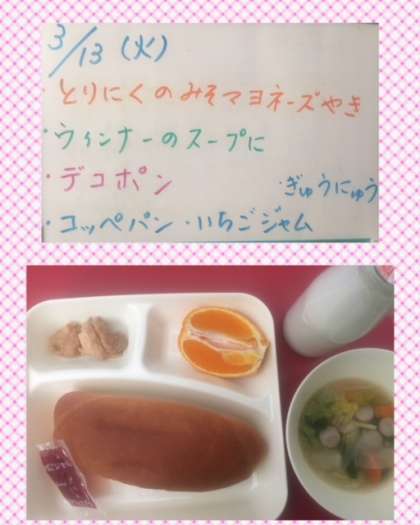 3/13 (火)
・とりにくのみそマヨネーズやき
・ウィンナーのスープに
・デコポン ・ぎゅうにゅう
・コッペパン ・いちごジャム